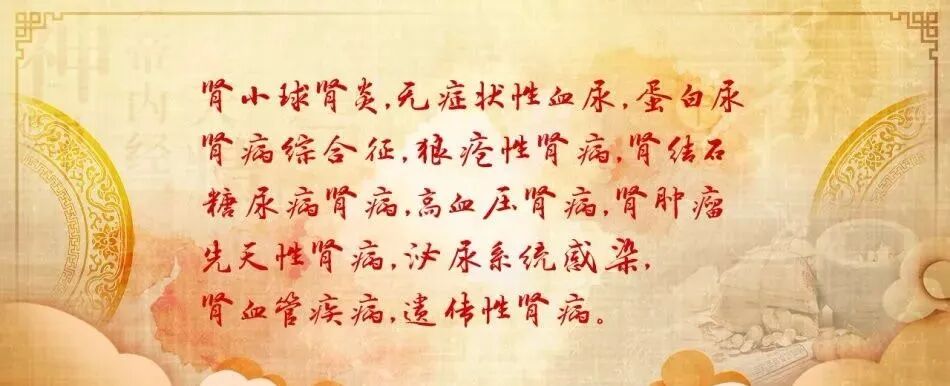 肾小球肾炎,无症状性血尿,蛋白尿
肾病综合征,狼疮性肾病,肾结石
糖尿病肾病,高血压肾病,肾肿瘤
先天性肾病,泌尿系统感染,
肾血管疾病,遗传性肾病。